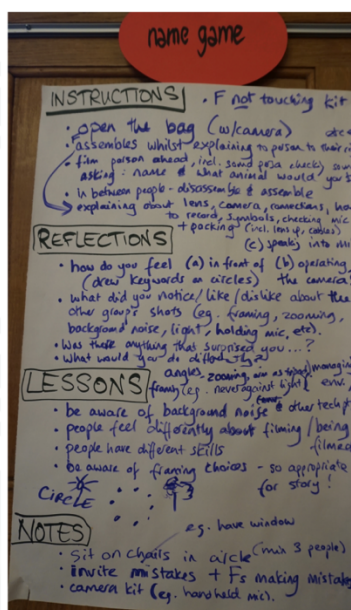 name game
INSTRUCTIONS
• F not touching kit
• open the bag (w/camera)
• assembles whilst explaining to person to their
• film person ahead, incl. sound
asking: name & what animal would you
• In between people - disassemble & assemble
explaining about lens, camera, connections,
to record, symbols, checking mic
+ packing (incl. lens up, cables)
REFLECTIONS
(c) speaking into
• how do you feel (a) in front of (b) operating,
(drew keywords on circles) the camera?
• what did you notice/like/dislike about the
other groups shots (eg. framing, zooming,
background noise, light, holding mic, etc).
• Was there anything that surprised you...?
• What would you do differently?
LESSONS
angles, zooming,
framing (eg. never against light)
• be aware of background noise & other tech
• people feel differently about filming/being
filmed
• people have different skills
• be aware of framing choices - so appropriate
for story!
CIRCLE
eg. have window
NOTES
• sit on chairs in circle (min 3 people)
• invite mistakes + Fs making mistakes
• camera kit (eg. handheld mic).